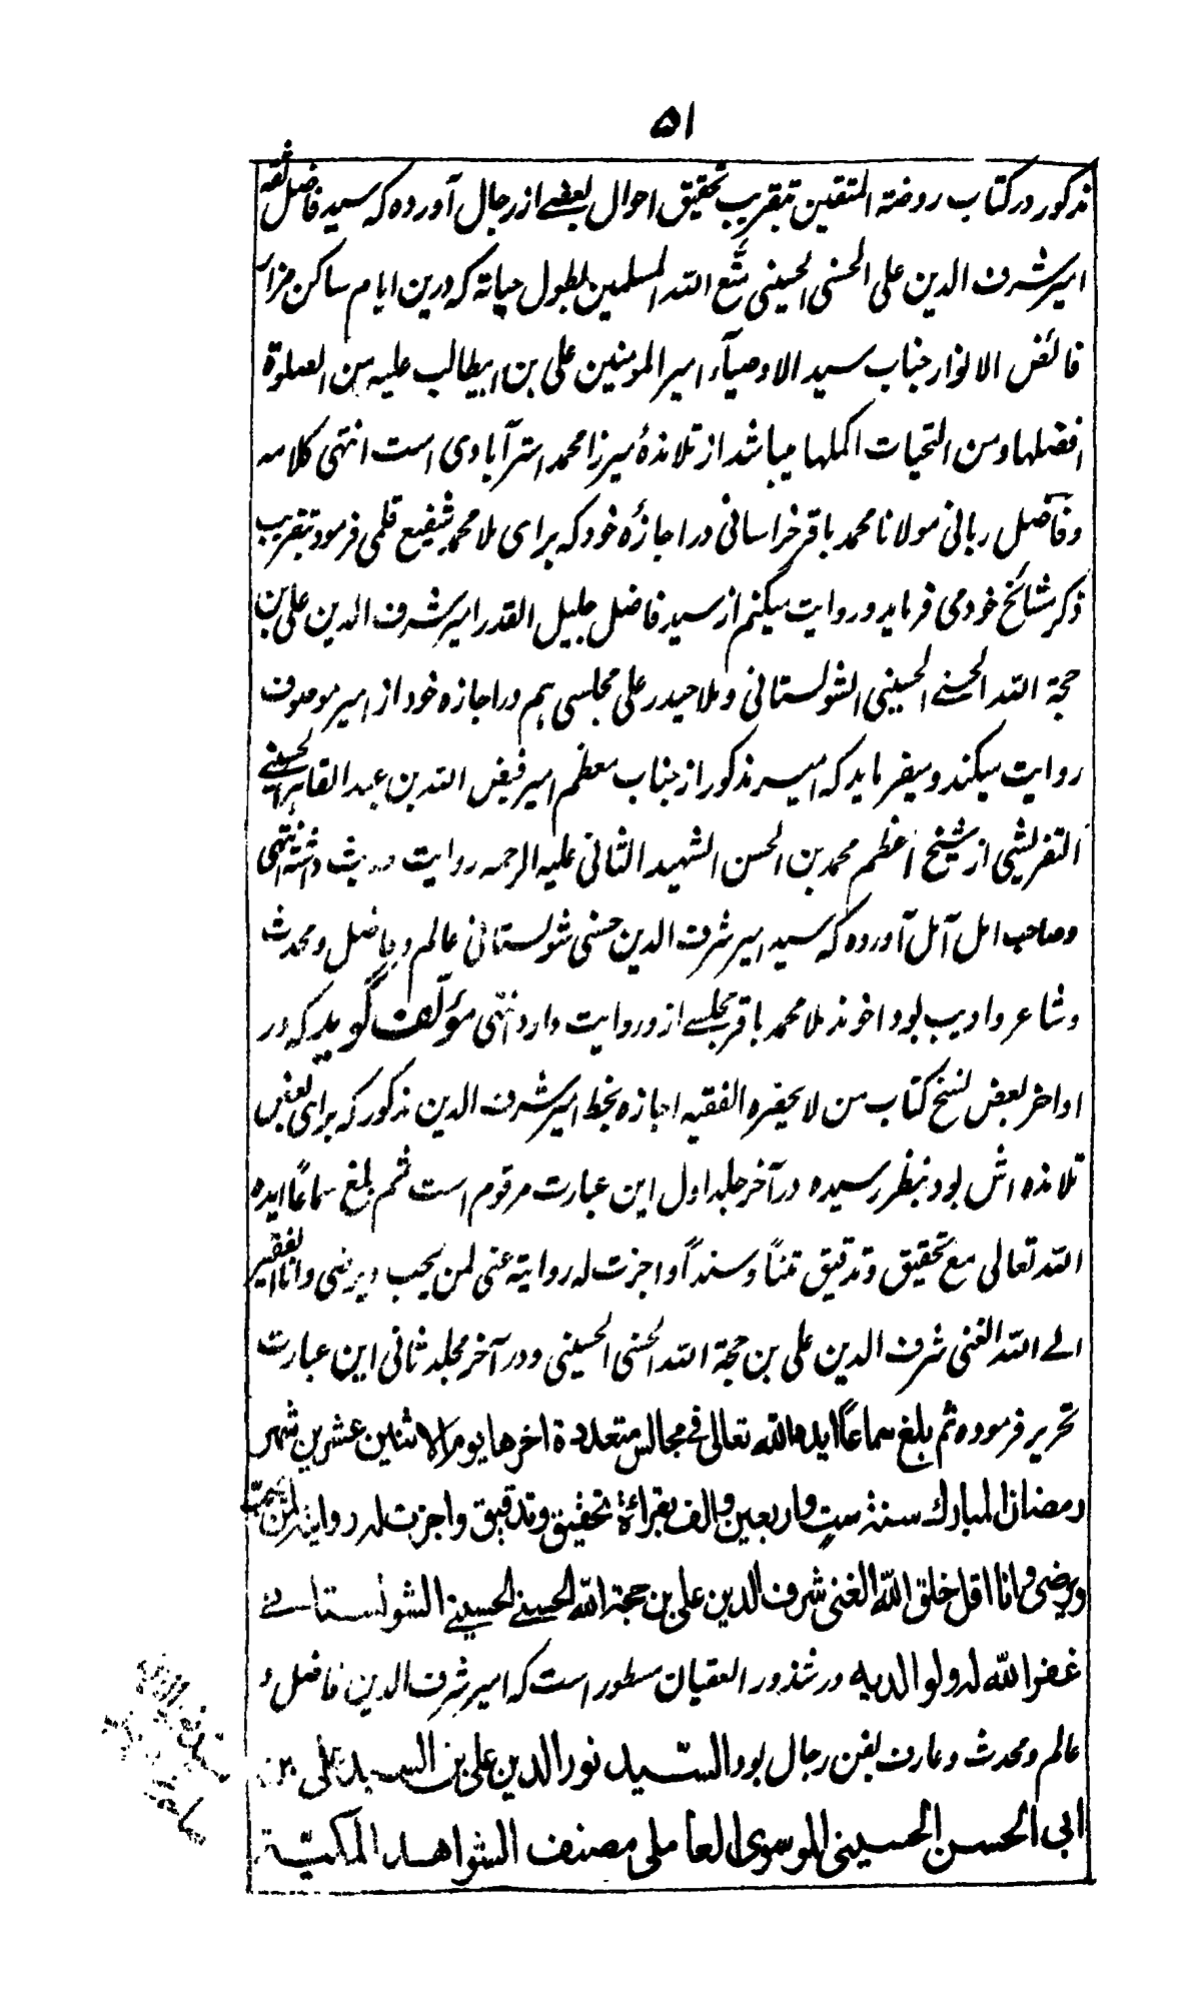 ۵۱
مذکور در کتاب روضة المتقین بتقریب تحقیق احوال بعضے از رجال آورده که سید فاضل ثقه
امیر شرف الدین علی الحسنی الحسینی متّع الله المسلمین بطول حیاته که درین ایام ساکن مزار
فائض الانوار جناب سید الاوصیآء امیر المومنین علی بن ابیطالب علیه من الصلوة
افضلها و من التحیات اکملها میباشد از تلامذۀ میرزا محمد استرآبادی است انتهی کلامه
و فاضل ربانی مولانا محمد باقر خراسانی در اجازۀ خود که برای ملا محمد شفیع قلمی فرمود بتقریب
ذکر مشائخ خود می فرماید و روایت میکنم از سید فاضل جلیل القدر امیر شرف الدین علی بن
حجة الله الحسنے الحسینی الشولستانی و ملا حیدر علی مجلسی هم در اجازه خود از امیر موصوف
روایت میکند و میفرماید که امیر مذکور از جناب معظم امیر فیض الله بن عبد القاهر الحسینے
التفریشی از شیخ اعظم محمد بن الحسن الشهید الثانی علیه الرحمه روایت حدیث داشته انتهی
و صاحب امل آمل آورده که سید امیر شرف الدین حسنی شولستانی عالم و فاضل و محدث
و شاعر و ادیب بود اخوند ملا محمد باقر مجلسے از و روایت دارد انتهی مؤلف گوید که در
اواخر بعض نسخ کتاب من لا یحضره الفقیه اجازه بخط امیر شرف الدین مذکور که برای بعض
تلامذه اش بود بنظر رسیده در آخر جلد اول این عبارت مرقوم است ثم بلغ سماعًا ایده
الله تعالی مع تحقیق و تدقیق متنًا و سنداً و اجزت له روایته عنی لمن یحب و یرضی و انا الفقیر
الے الله الغنی شرف الدین علی بن حجة الله الحسنی الحسینی و در آخر مجلد ثانی این عبارت
تحریر فرموده ثم بلغ سماعًا ایده الله تعالی فی مجالس متعددة اخرها یوم الاثنین عشرین شهر
رمضان المبارك سنة ست و اربعین و الف بقرائة تحقیق و تدقیق و اجزت له روایته لمن یحبّ
ویرضی و انا اقل خلق الله الغنی شرف الدین علی بن حجة الله الحسنے الحسینے الشولستانے
غفر الله له و لوالدیه در شذور العقیان مسطور است که امیر شرف الدین فاضل و
عالم و محدث و عارف بفن رجال بود السّید نور الدین علی بن السید علی بن
ابی الحسن الحسینی الموسوی العاملی مصنف الشواهد المکیّة